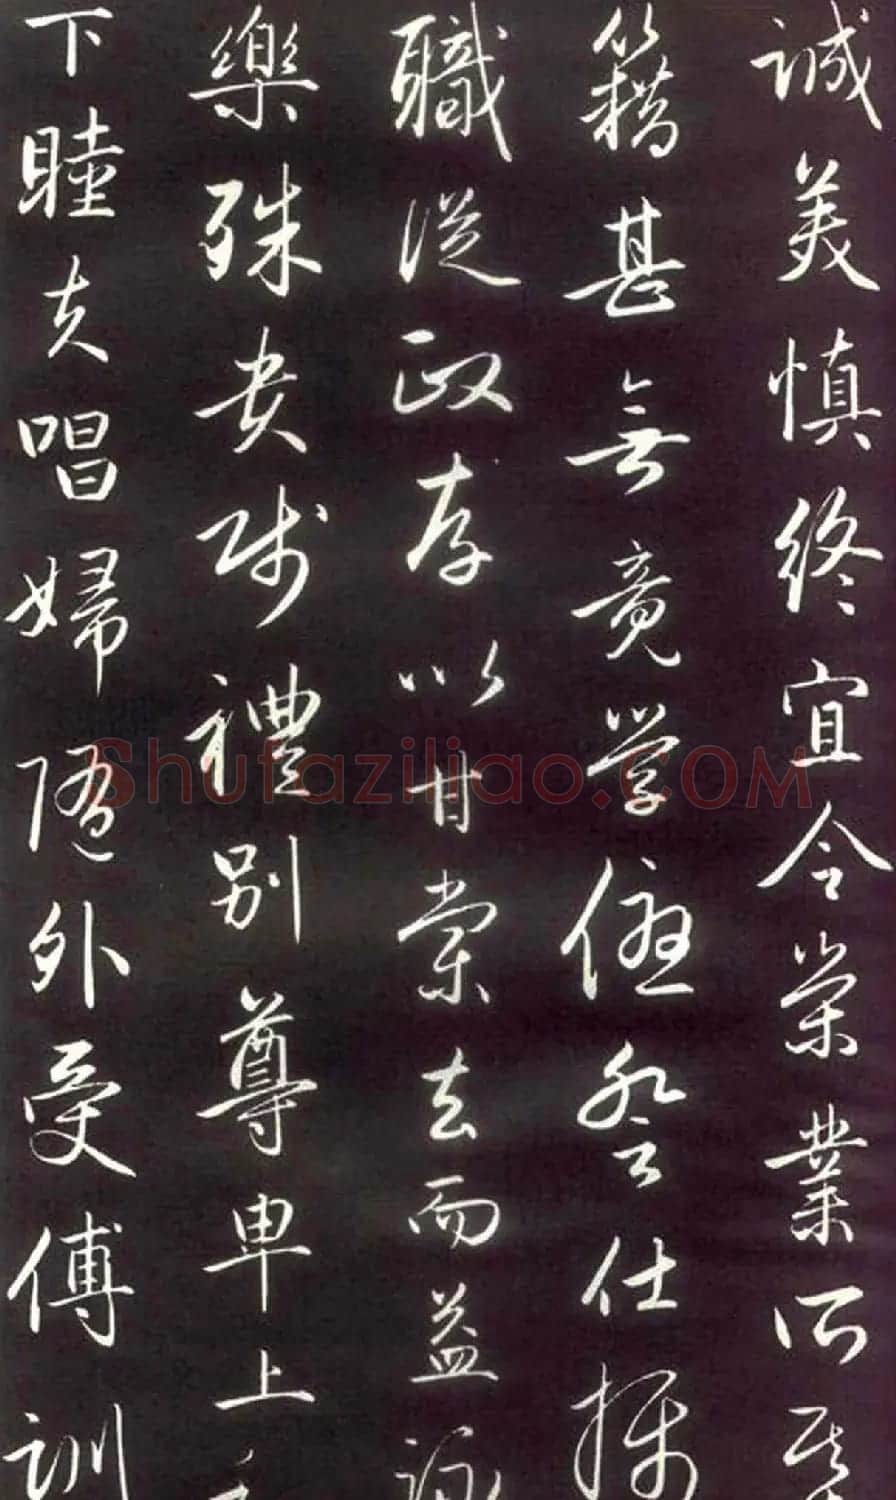 誠美慎終宜令榮業所基
籍甚無竟學優登仕攝
職從政存以甘棠去而益詠
樂殊貴賤禮別尊卑上
下睦夫唱婦隨外受傅訓
Shufaziliao.COM